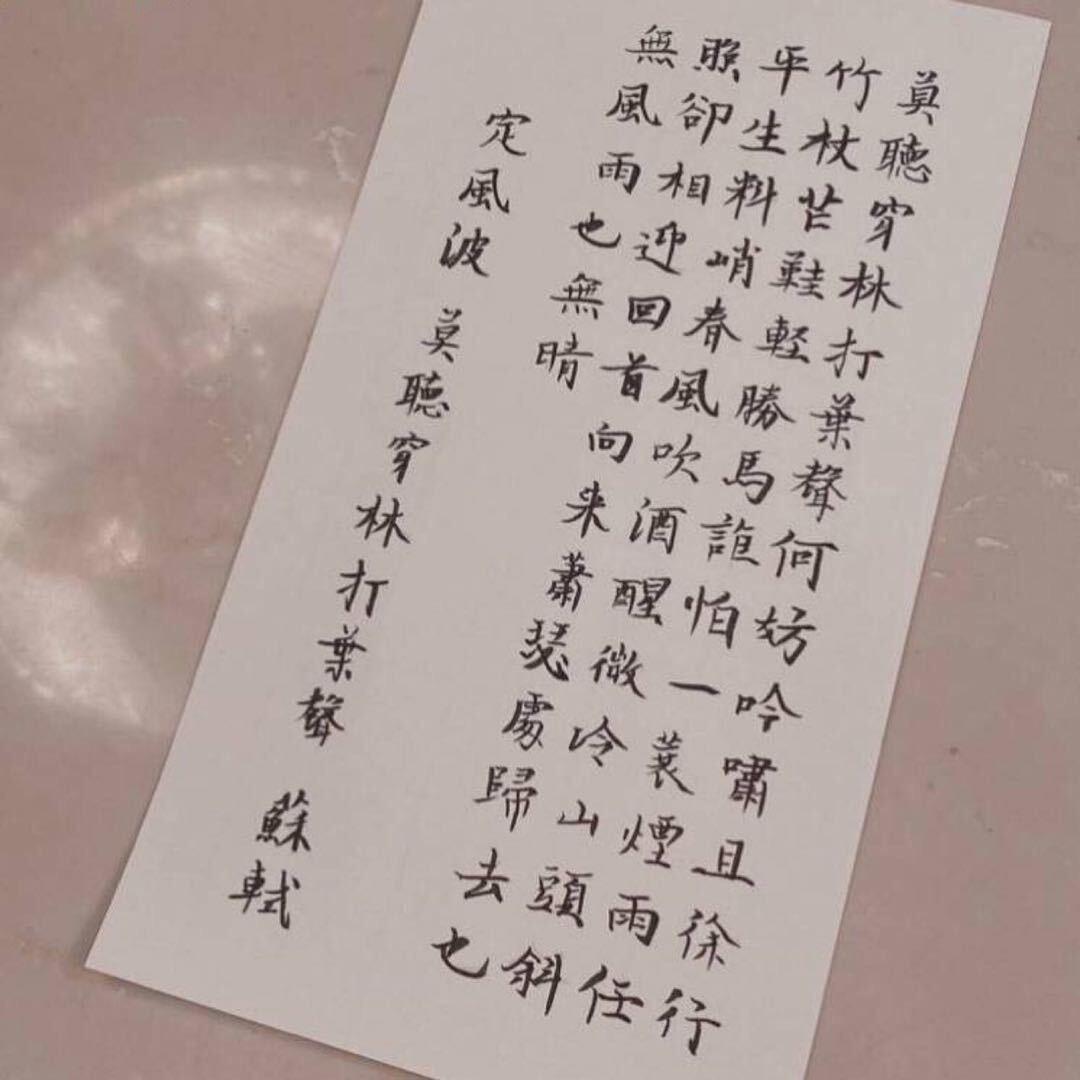 莫聽穿林打葉聲何妨吟嘯且徐行
竹杖芒鞋輕勝馬誰怕一蓑煙雨任
平生料峭春風吹酒醒微冷山頭斜
照卻相迎回首向来蕭瑟處歸去也
無風雨也無晴
定風波 莫聽穿林打葉聲 蘇軾